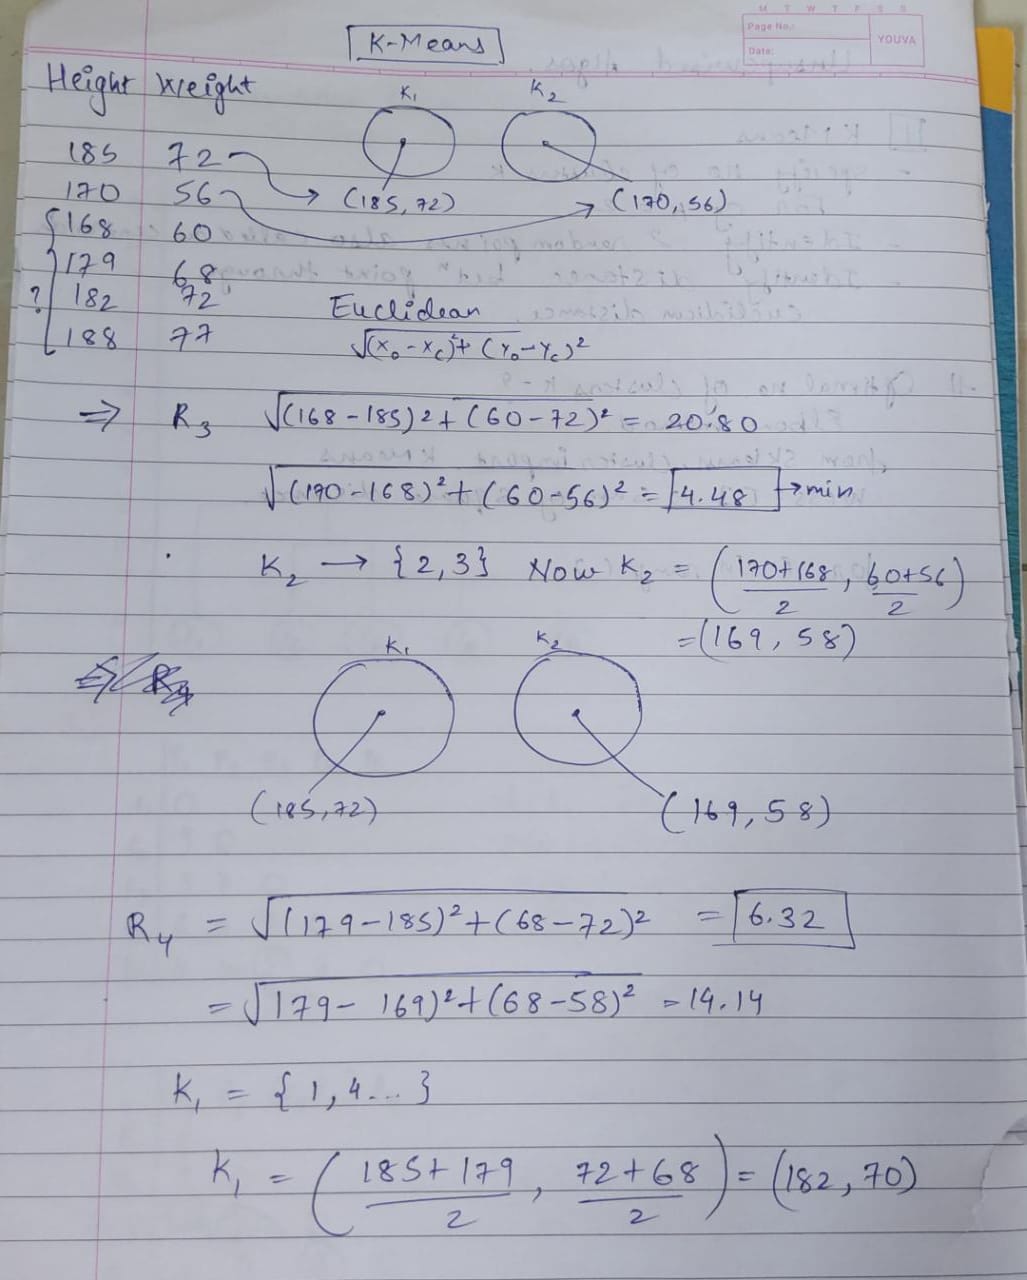 M T W T F S S
Page No.:
Date:
YOUVA
K-Means
Height Weight
K₁ K₂
185 72
170 56 (185, 72) (170, 56)
168 60
179 68
? 182 72 Euclidean
188 77 √(x₀-x_c)²+ (Y₀-Y_c)²
⇒ R₃ √(168-185)²+(60-72)² = 20.80
√(170-168)²+(60-56)² = 4.48 → min
K₂ → {2,3} Now K₂ = (170+168/2, 60+56/2)
= (169, 58)
K₁ K₂
(185,72) (169, 58)
R₄ = √(179-185)²+(68-72)² = 6.32
= √179- 169)²+(68-58)² = 14.14
K₁ = {1,4...}
K₁ = (185+179/2, 72+68/2) = (182, 70)